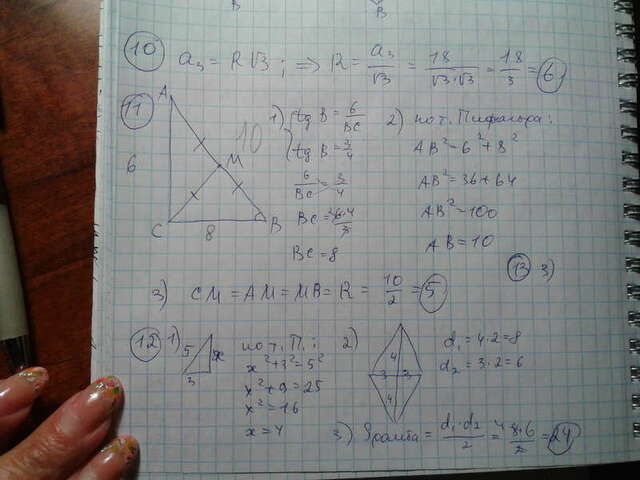 B
B
10 a₃ = R√3 ; ⟹ R = a₃/√3 = 18/(√3·√3) = 18/3 = 6
11
A
6
10
M
C
8
B
1) { tg B = 6/BC
tg B = 3/4
6/BC = 3/4
BC = 6·4/3
BC = 8
2) по т. Пифагора:
AB² = 6² + 8²
AB² = 36 + 64
AB² = 100
AB = 10
13 3)
3) CM = AM = MB = R = 10/2 = 5
12 1)
5
x
3
по т. П.:
x² + 3² = 5²
x² + 9 = 25
x² = 16
x = 4
2)
4
3 3
4
d₁ = 4·2 = 8
d₂ = 3·2 = 6
3) Sромба = d₁·d₂/2 = 8·6/2 = 24